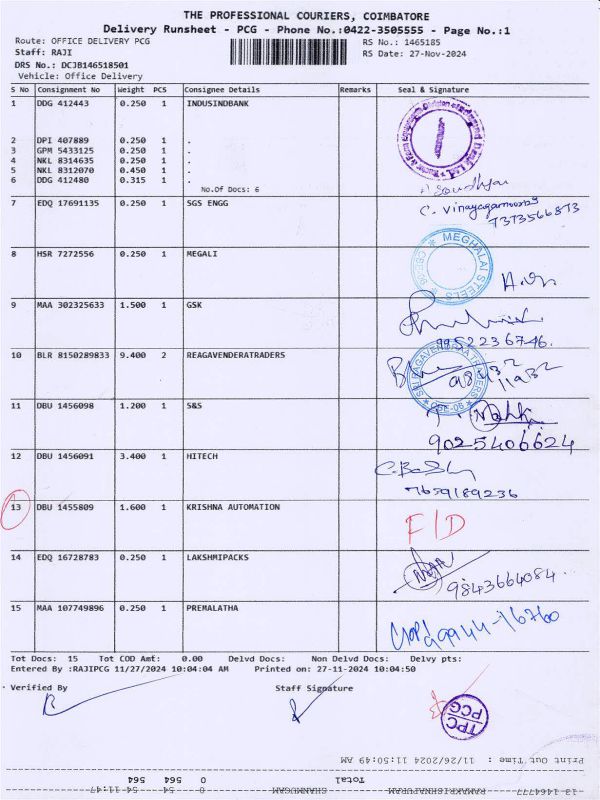 THE PROFESSIONAL COURIERS, COIMBATORE
Delivery Runsheet - PCG - Phone No.:0422-3505555 - Page No.:1
Route: OFFICE DELIVERY PCG RS No.: 1465185
Staff: RAJI RS Date: 27-Nov-2024
DRS No.: DCJB146518501
Vehicle: Office Delivery
S No Consignment No Weight PCS Consignee Details Remarks Seal & Signature
1 DDG 412443 0.250 1 INDUSINDBANK
2 DPI 407889 0.250 1 .
3 GPM 5433125 0.250 1 .
4 NKL 8314635 0.250 1 .
5 NKL 8312070 0.450 1 .
6 DDG 412480 0.315 1 .
No.Of Docs: 6
7 EDQ 17691135 0.250 1 SGS ENGG
7373566873
8 HSR 7272556 0.250 1 MEGALI
MEGHALAI STEELS
9 MAA 302325633 1.500 1 GSK
9952236746.
10 BLR 8150289833 9.400 2 REAGAVENDERATRADERS
11 DBU 1456098 1.200 1 S&S
9025406624
12 DBU 1456091 3.400 1 HITECH
7659189236
13 DBU 1455809 1.600 1 KRISHNA AUTOMATION
F/D
14 EDQ 16728783 0.250 1 LAKSHMIPACKS
9843664084
15 MAA 107749896 0.250 1 PREMALATHA
Tot Docs: 15 Tot COD Amt: 0.00 Delvd Docs: Non Delvd Docs: Delvy pts:
Entered By :RAJIPCG 11/27/2024 10:04:04 AM Printed on: 27-11-2024 10:04:50
Verified By Staff Signature
TPC
PCG
Print Out Time : 11/26/2024 11:50:49 AM
Total 0 564 564
13 1464777 RAMAKRISHNAPURAM SHANMUGAM 0 54 54 11:47